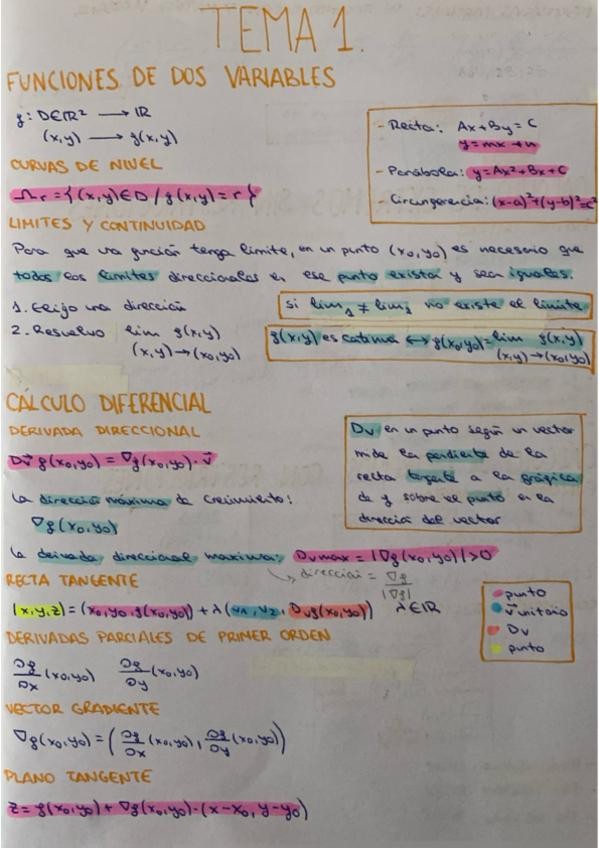 TEMA 1.
FUNCIONES DE DOS VARIABLES
f: D∈ℝ² → ℝ
(x,y) → f(x,y)
- Recta: Ax+By=C
y=mx+n
- Parábola: y=Ax²+Bx+C
- Circunferencia: (x-a)²+(y-b)²=c²
CURVAS DE NIVEL
Ωr = {(x,y)∈D / f(x,y)=r}
LIMITES Y CONTINUIDAD
Para que una función tenga límite, en un punto (x₀,y₀) es necesario que
todos los límites direccionales en ese punto existan y sean iguales.
1. Elijo una dirección
2. Resuelvo lim f(x,y)
(x,y)→(x₀,y₀)
si lim₁ ≠ lim₂ no existe el límite
f(x,y) es continua ↔ f(x₀,y₀)= lim f(x,y)
(x,y)→(x₀,y₀)
CÁLCULO DIFERENCIAL
DERIVADA DIRECCIONAL
Dv⃗ f(x₀,y₀) = ∇f(x₀,y₀)·v⃗
La dirección máxima de crecimiento:
∇f(x₀,y₀)
Dv en un punto según un vector
mide la pendiente de la
recta tangente a la gráfica
de f sobre el punto en la
dirección del vector
La derivada direccional máxima: Dvmax = |∇f(x₀,y₀)|>0
↳ dirección = ∇f/|∇f|
RECTA TANGENTE
(x,y,z) = (x₀,y₀,f(x₀,y₀)) + λ(v₁,v₂,Dvf(x₀,y₀)) λ∈ℝ
punto
v⃗ unitario
Dv
punto
DERIVADAS PARCIALES DE PRIMER ORDEN
∂f/∂x (x₀,y₀) ∂f/∂y (x₀,y₀)
VECTOR GRADIENTE
∇f(x₀,y₀) = (∂f/∂x (x₀,y₀), ∂f/∂y (x₀,y₀))
PLANO TANGENTE
z = f(x₀,y₀) + ∇f(x₀,y₀)·(x-x₀, y-y₀)